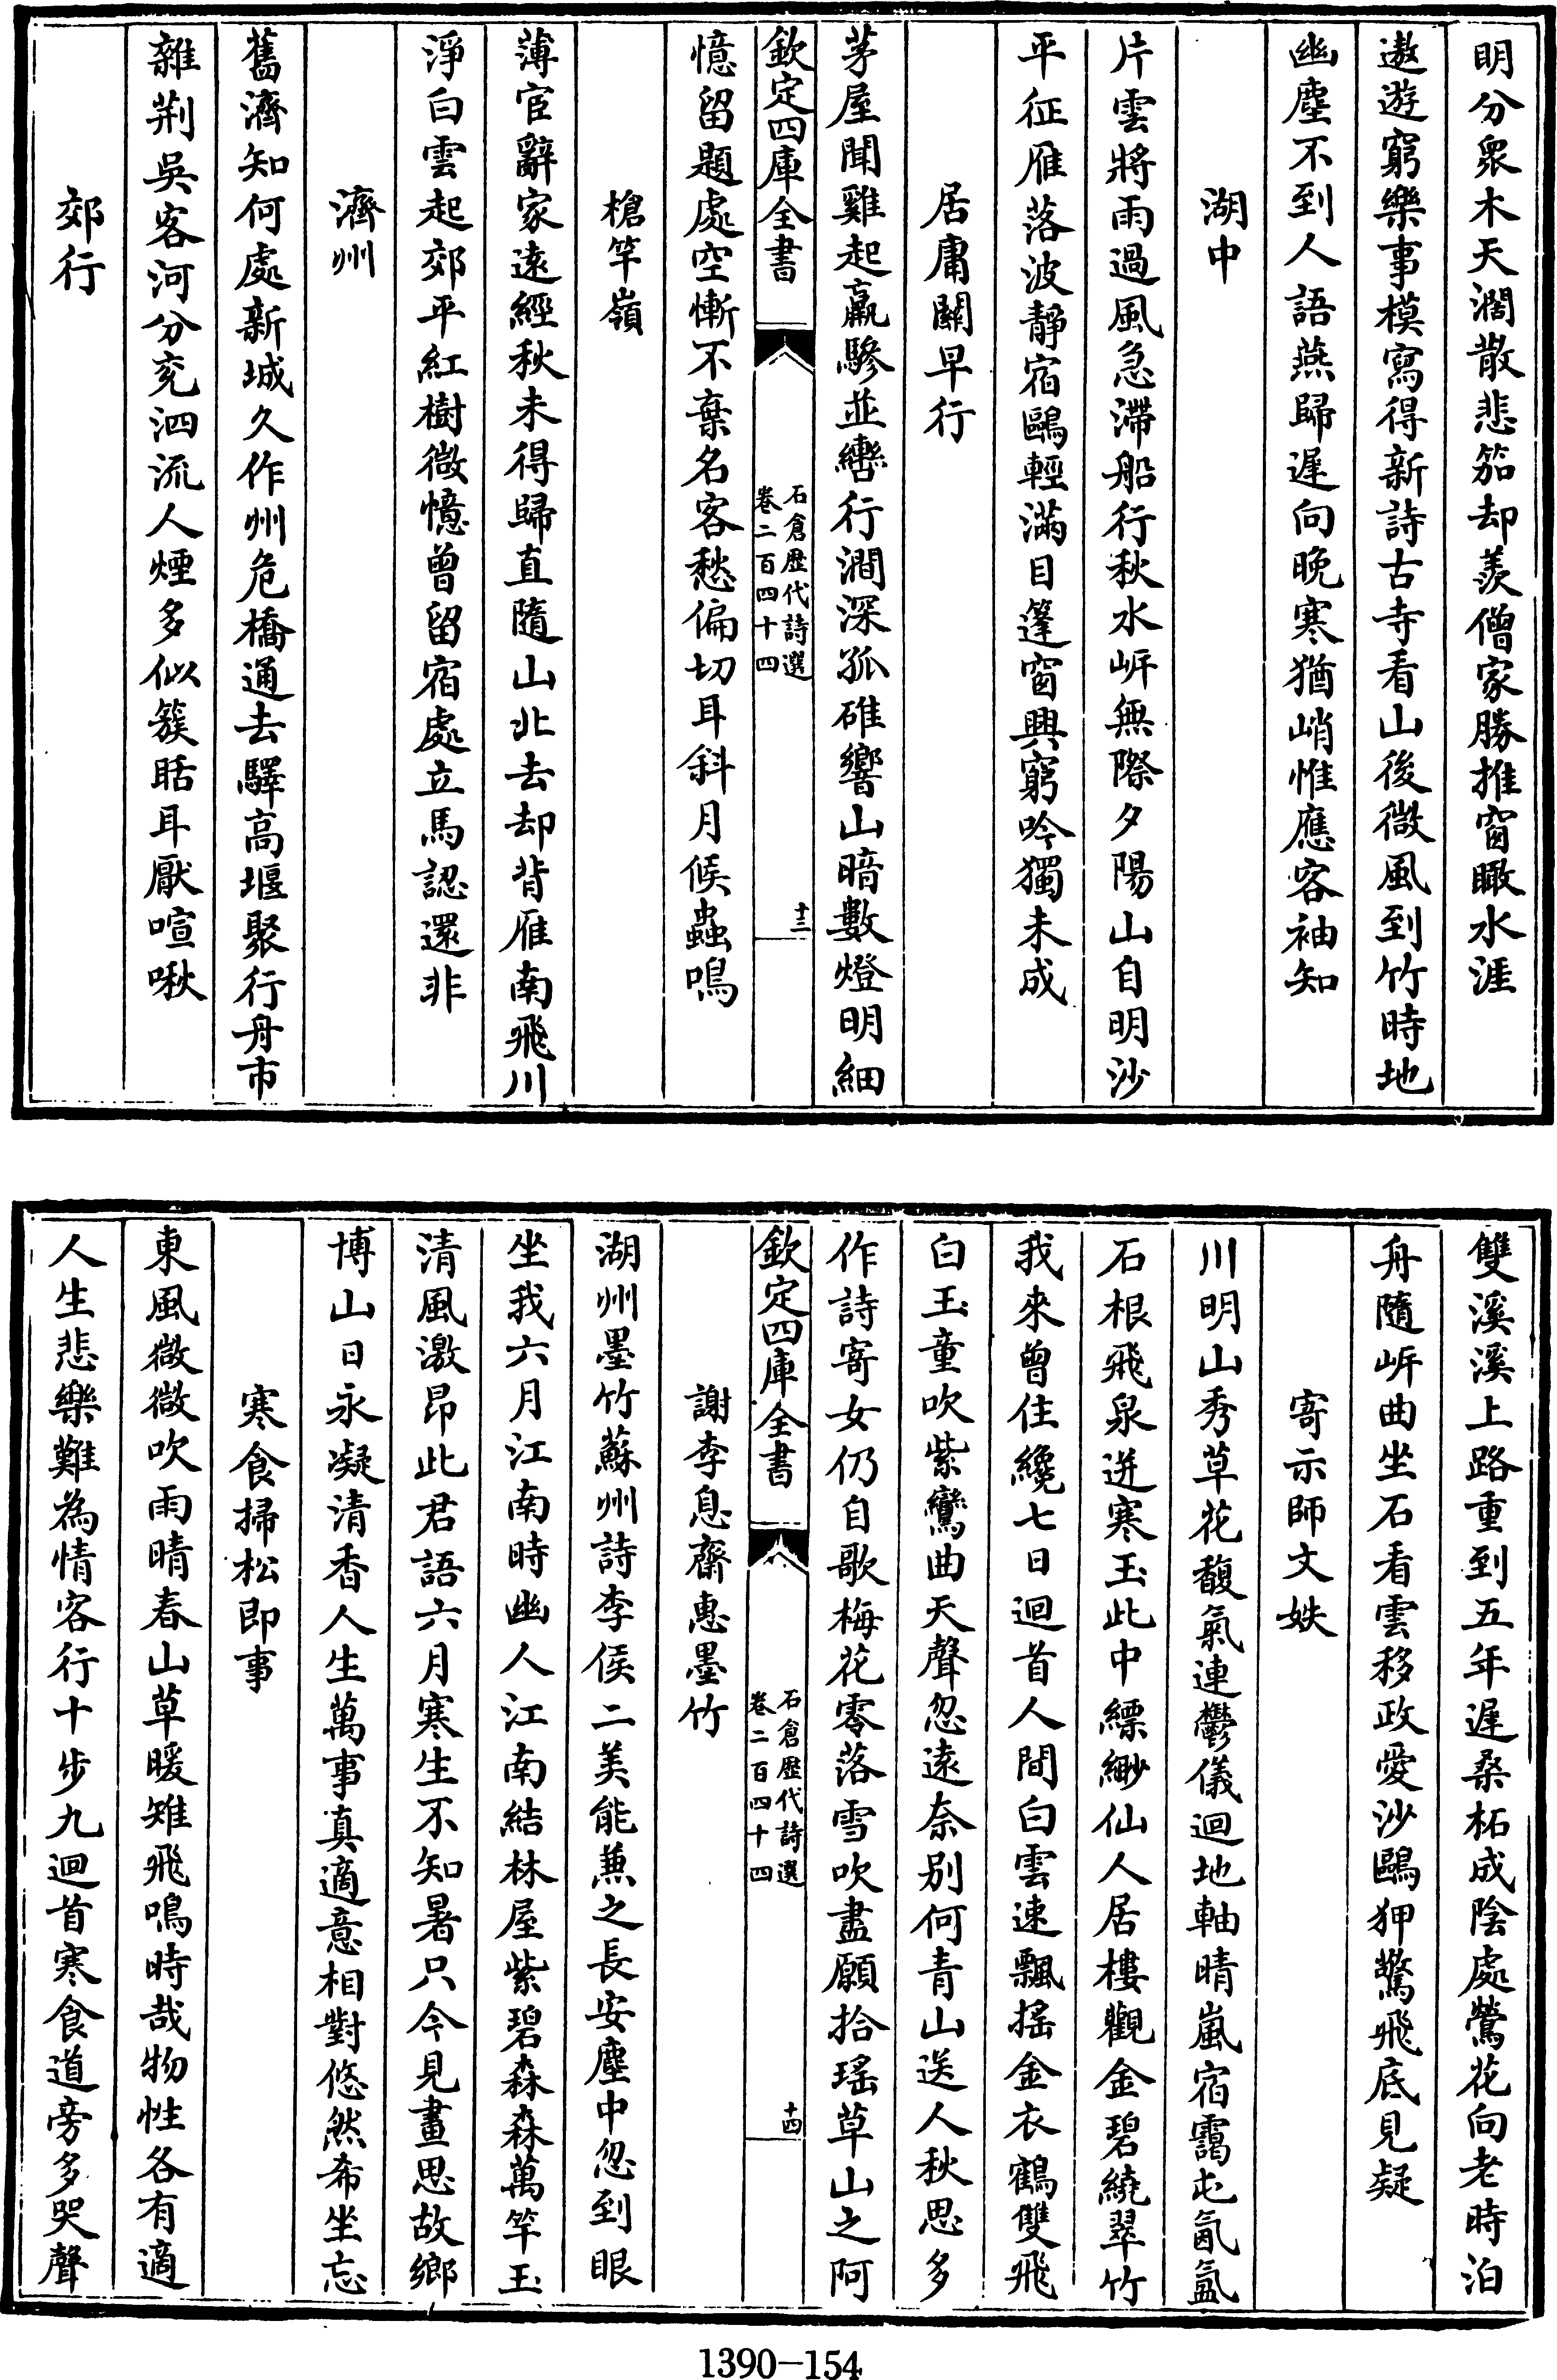 明分衆木天濶散悲笳却羨僧家勝推窗瞰水涯
遨遊窮樂事模寫得新詩古寺看山後微風到竹時地
幽塵不到人語燕歸遲向晚寒猶峭惟應客袖知
湖中
片雲將雨過風急滯船行秋水岍無際夕陽山自明沙
平征雁落波靜宿鷗輕滿目篷窗興窮吟獨未成
居庸關早行
茅屋聞雞起羸驂並轡行澗深孤碓響山暗數燈明細
欽定四庫全書
石倉歷代詩選
卷二百四十四
十三
憶留題處空慚不棄名客愁偏切耳斜月候蟲鳴
槍竿嶺
薄宦辭家遠經秋未得歸直隨山北去却背雁南飛川
淨白雲起郊平紅樹微憶曾留宿處立馬認還非
濟州
舊濟知何處新城久作州危橋通去驛高堰聚行舟市
雜荆吳客河分兖泗流人煙多似簇聒耳厭喧啾
郊行
雙溪溪上路重到五年遲桑柘成陰處鶯花向老時泊
舟隨岍曲坐石看雲移政愛沙鷗狎驚飛底見疑
寄示師文姪
川明山秀草花馥氣連鬱儀迴地軸晴嵐宿靄屯氤氳
石根飛泉迸寒玉此中縹緲仙人居樓觀金碧繞翠竹
我來曾住纔七日迴首人間白雲速飄搖金衣鶴雙飛
白玉童吹紫鸞曲天聲忽遠奈别何青山送人秋思多
作詩寄女仍自歌梅花零落雪吹盡願拾瑤草山之阿
欽定四庫全書
石倉歷代詩選
卷二百四十四
十四
謝李息齋惠墨竹
湖州墨竹蘇州詩李侯二美能兼之長安塵中忽到眼
坐我六月江南時幽人江南結林屋紫碧森森萬竿玉
清風激昂此君語六月寒生不知暑只今見畫思故鄉
博山日永凝清香人生萬事真適意相對悠然希坐忘
寒食掃松即事
東風微微吹雨晴春山草暖雉飛鳴時哉物性各有適
人生悲樂難為情客行十步九迴首寒食道旁多哭聲
1390-154